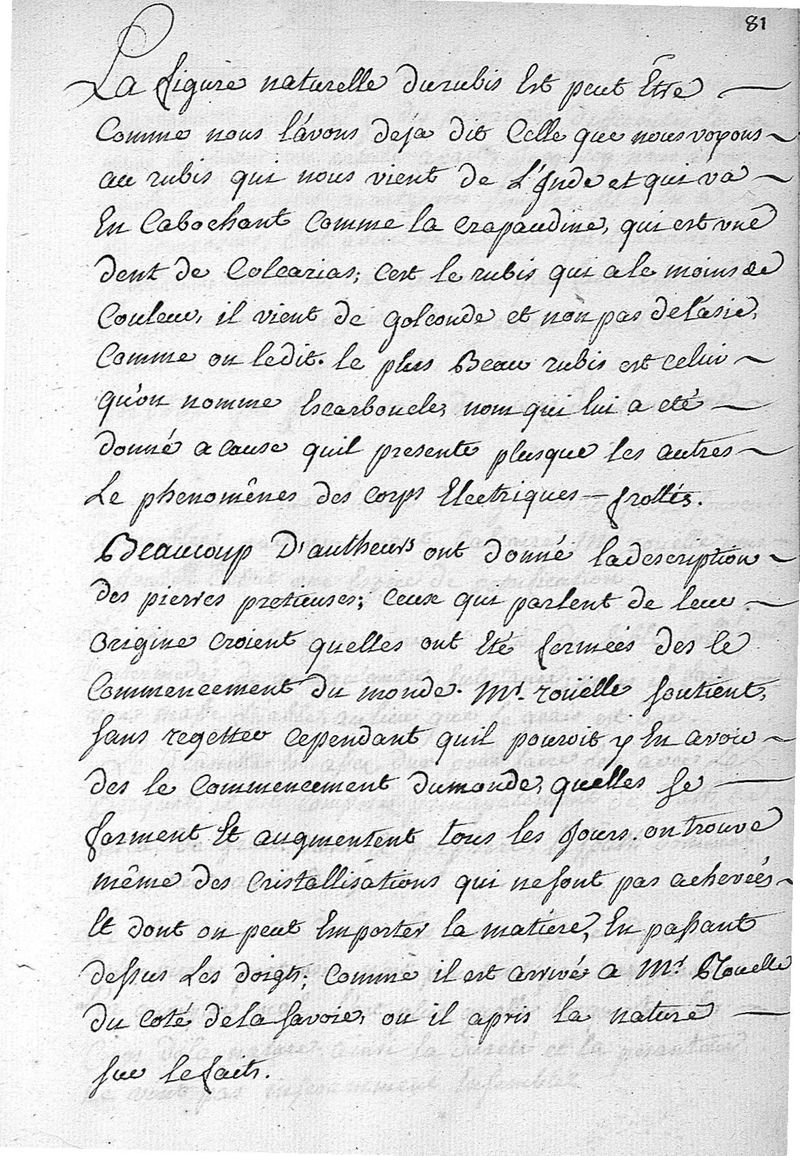 81
La figure naturelle du rubis Est peut Être
Comme nous l'avons deja dit Celle que nous voyons
au rubis qui nous vient de L'Inde et qui va
En Cabochant Comme la Crapaudine, qui est une
dent de Colcarias; C'est le rubis qui a le moins de
Couleur, il vient de golconde et non pas de l'asie,
Comme on le dit. le plus Beau rubis est celui
qu'on nomme Escarboucle, nom qui lui a eté
donné a cause quil presente plusque les autres
Le phenomênes des corps Electriques frottés.
Beaucoup D'autheurs ont donné la description
des pierres pretieuses; Ceux qui parlent de leur
Origine croient quelles ont Eté formées des le
Commencement du monde. Mr. roüelle soutient,
sans regetter cependant quil pouroit y En avoir
des le Commencement du monde, quelles se
forment Et augmentent tous les Jours. on trouve
même des Cristallisations qui ne sont pas achevées
Et dont on peut Emporter la matiere, En passant
dessus Les doigts; Comme il est arrivé a Mr. Rouelle
du coté de la Savoie, ou il apris la nature
sur le fait.